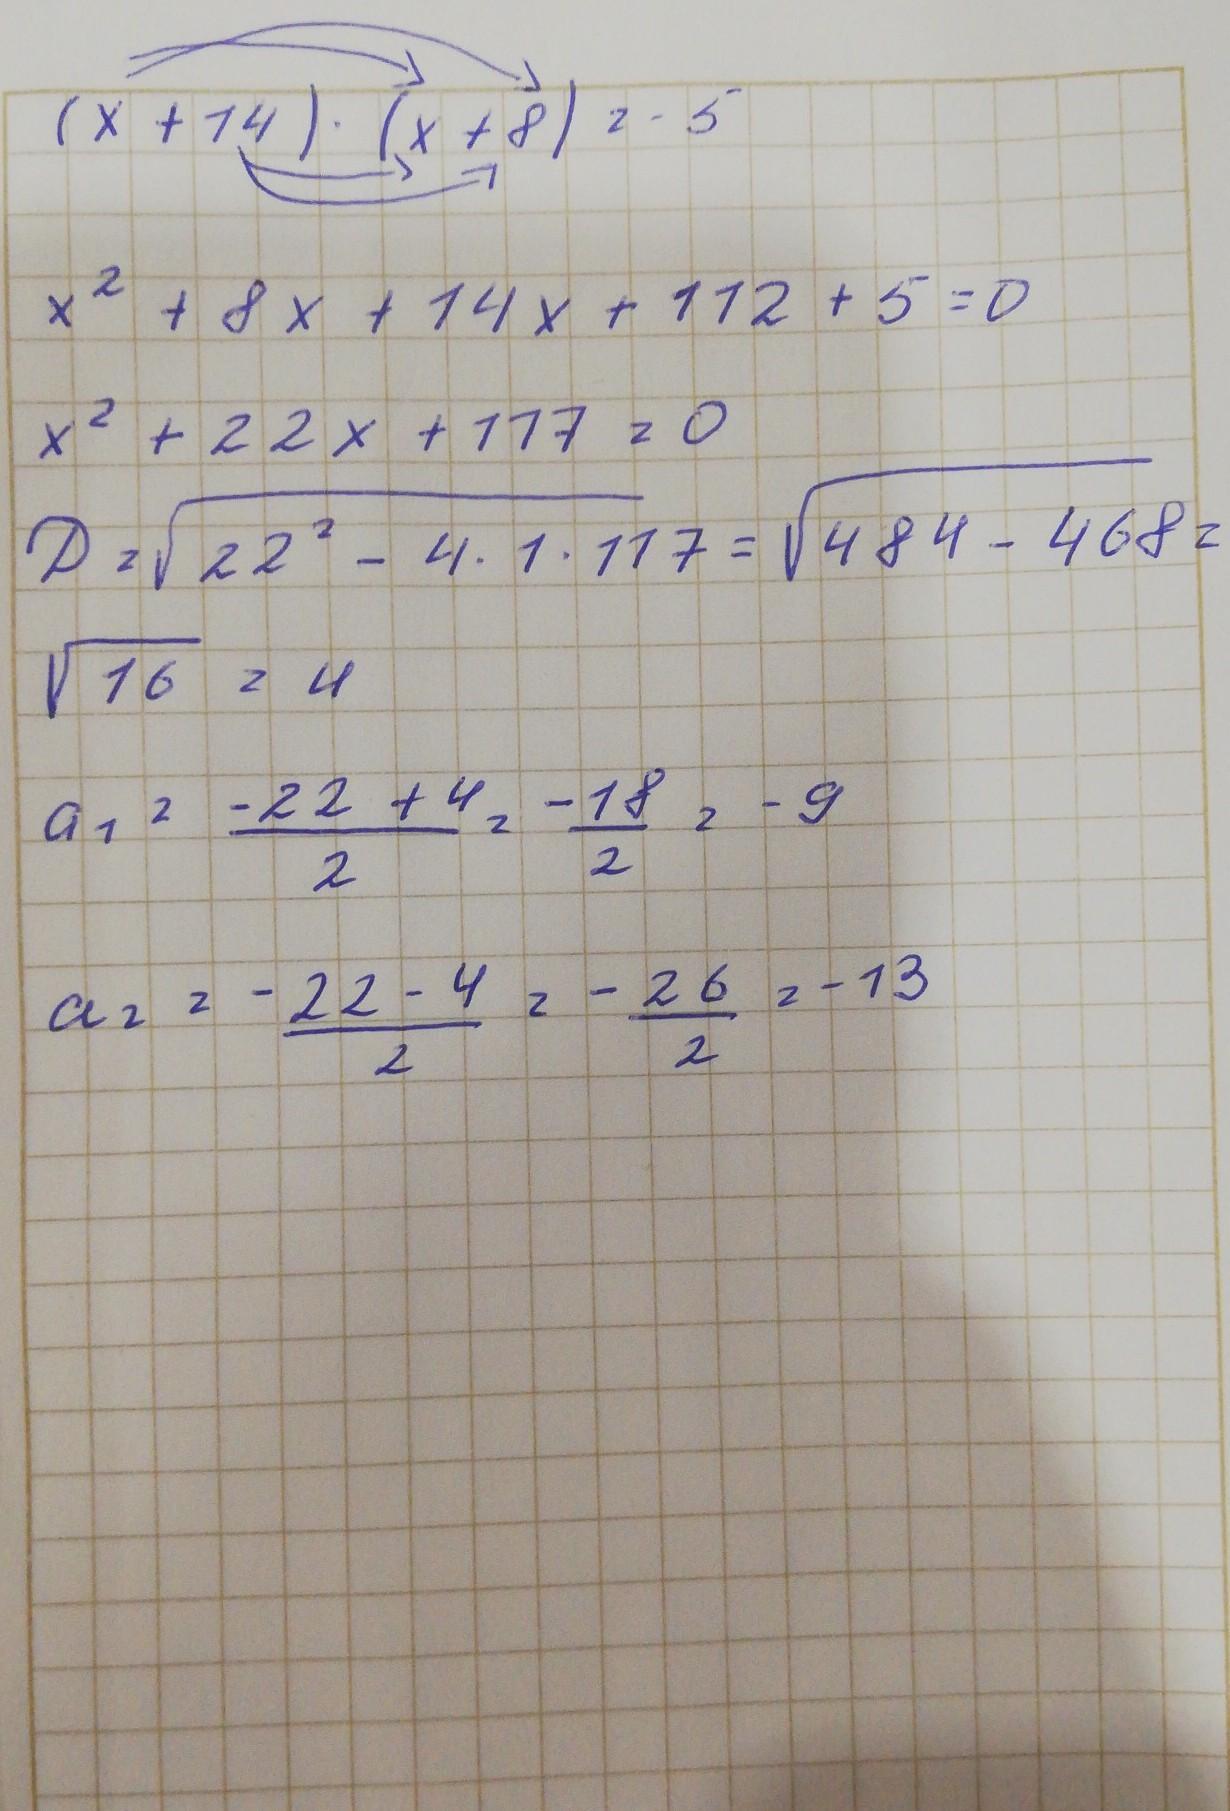 (x + 14) · (x + 8) = - 5
x² + 8x + 14x + 112 + 5 = 0
x² + 22x + 117 = 0
D = √22² - 4 · 1 · 117 = √484 - 468 =
√16 = 4
a₁ = -22 + 4/2 = -18/2 = -9
a₂ = -22 - 4/2 = -26/2 = -13